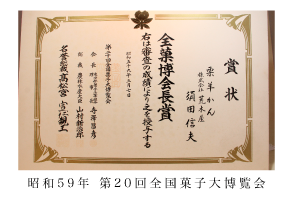 賞状
栗羊かん
株式会社 荒木屋
須田信夫
全菓博会長賞
右は審査の成績により之を授与する
昭和五十九年三月七日
第二十回全国菓子大博覧会
名誉総裁 高松宮 宣仁親王
昭和59年 第20回全国菓子大博覧会